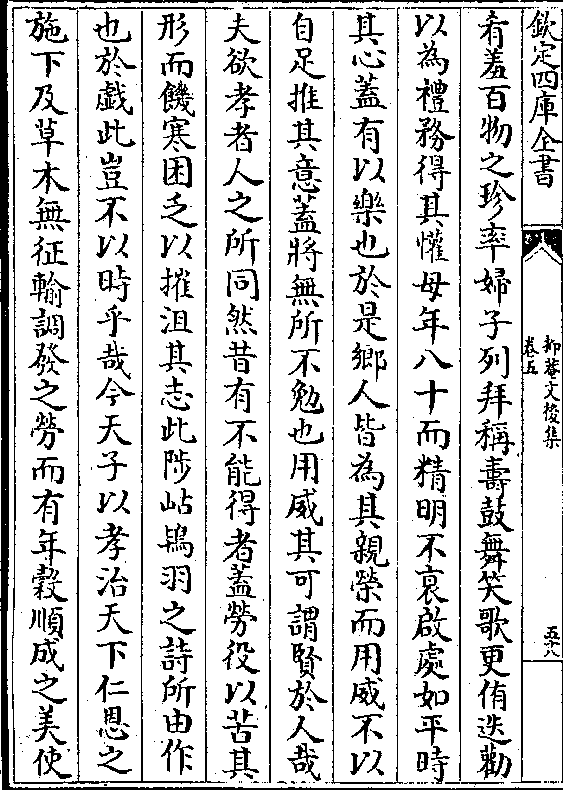 欽定四庫全書
抑菴文後集
卷五
五十八
肴羞百物之珍率婦子列拜稱壽鼓舞笑歌更侑迭勸
以為禮務得其懽母年八十而精明不衰啟處如平時
其心蓋有以樂也於是鄉人皆為其親榮而用威不以
自足推其意蓋將無所不勉也用威其可謂賢於人哉
夫欲孝者人之所同然昔有不能得者蓋勞役以苦其
形而饑寒困乏以摧沮其志此陟岵鴇羽之詩所由作
也於戲此豈不以時乎哉今天子以孝治天下仁恩之
施下及草木無征輸調發之勞而有年穀順成之美使